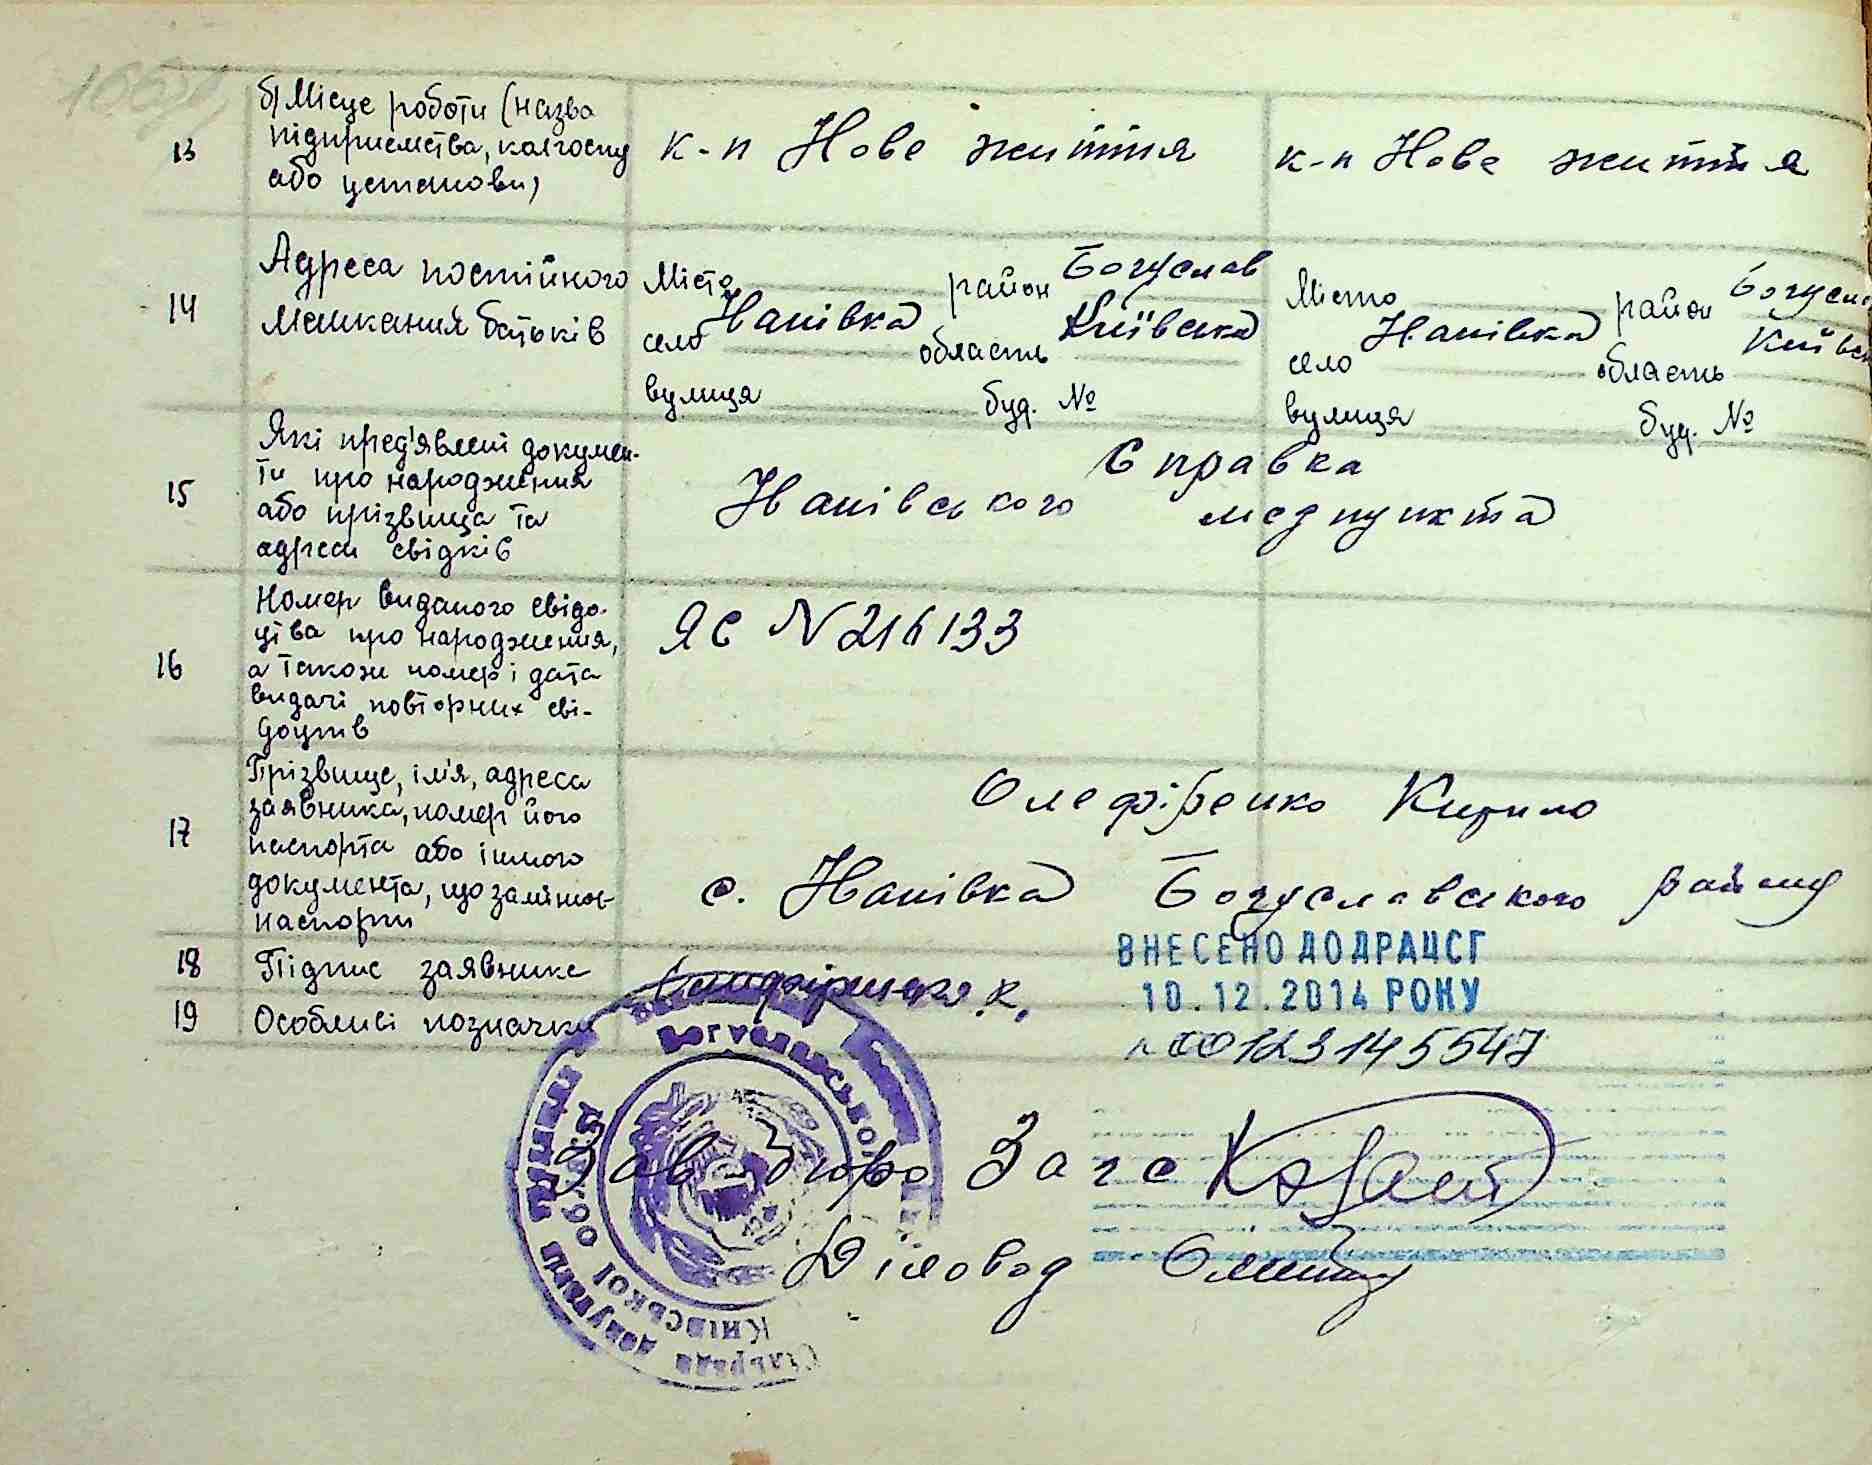 13
б) Місце роботи (назва
підприємства, колгоспу
або установи)
к-п Нове життя
к-п Нове життя
14
Адреса постійного
мешкання батьків
Місто район Богуслав
село Напівка область Київська
вулиця буд. №
Місто район Богусла
село Напівка область Київсь
вулиця буд. №
15
Які пред'явлені докумен-
ти про народження
або прізвища та
адреси свідків
Справка
Напівського медпункта
16
Номер виданого свідо-
цтва про народження,
а також номер і дата
видачі повторних сві-
доцтв
ЯС N 216133
17
Прізвище, ім'я, адреса
заявника, номер його
паспорта або іншого
документа, що замінює
паспорти
Олефіренко Кирило
с. Напівка Богуславського району
18
Підпис заявника
к.
19
Особливі позначки
ВНЕСЕНО ДО ДРАЦСГ
10.12.2014 РОКУ
00123145547
Зав. бюро Загс
Діловод
Богуславської
Київської області
депутатів